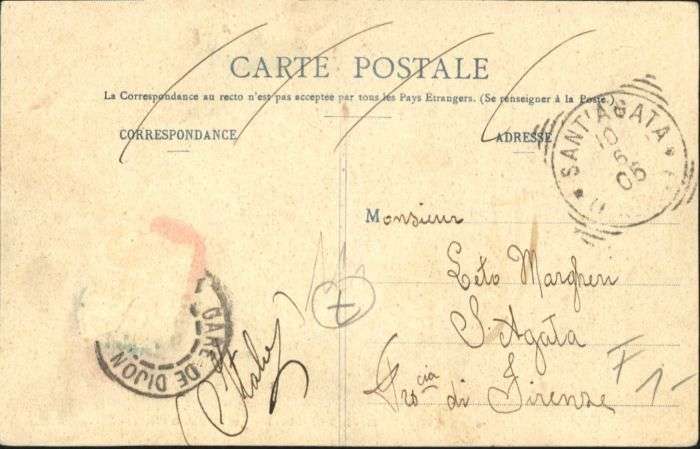 CARTE POSTALE
La Correspondance au recto n'est pas acceptee par tous les Pays Etrangers. (Se renseigner à la Poste.)
CORRESPONDANCE
ADRESSE
SANT'AGATA
Monsieur
Leto Margheri
S. Agata
Prov.cia di Firenze
(Italie)
GARE DE DIJON
7
F 1-